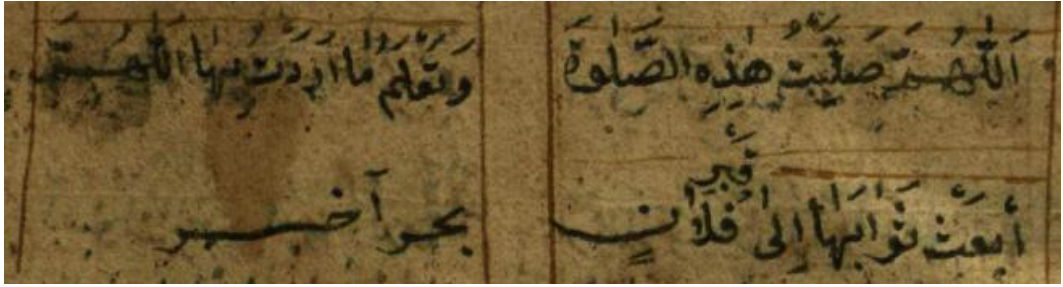 اَللّٰهُمَّ صَلَّيْتُ هٰذِهِ الصَّلٰوةَ
وَتَعْلَمُ مَا اَرَدْتُ بِهَا اَللّٰهُمَّ
قَبْرِ
أبعَثْ ثَوَابَهَا إِلٰى فُلَانٍ
بحر آخر